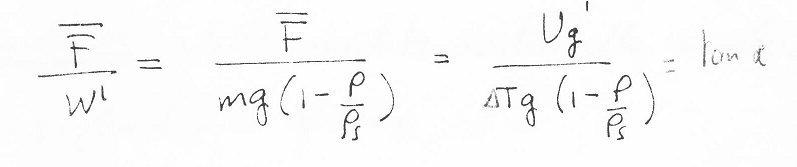 \frac{\overline{\overline{F}}}{W'} = \frac{\overline{\overline{F}}}{mg(1-\frac{\rho}{\rho_s})} = \frac{U_g'}{\Delta Tg(1-\frac{\rho}{\rho_s})} = \tan \alpha